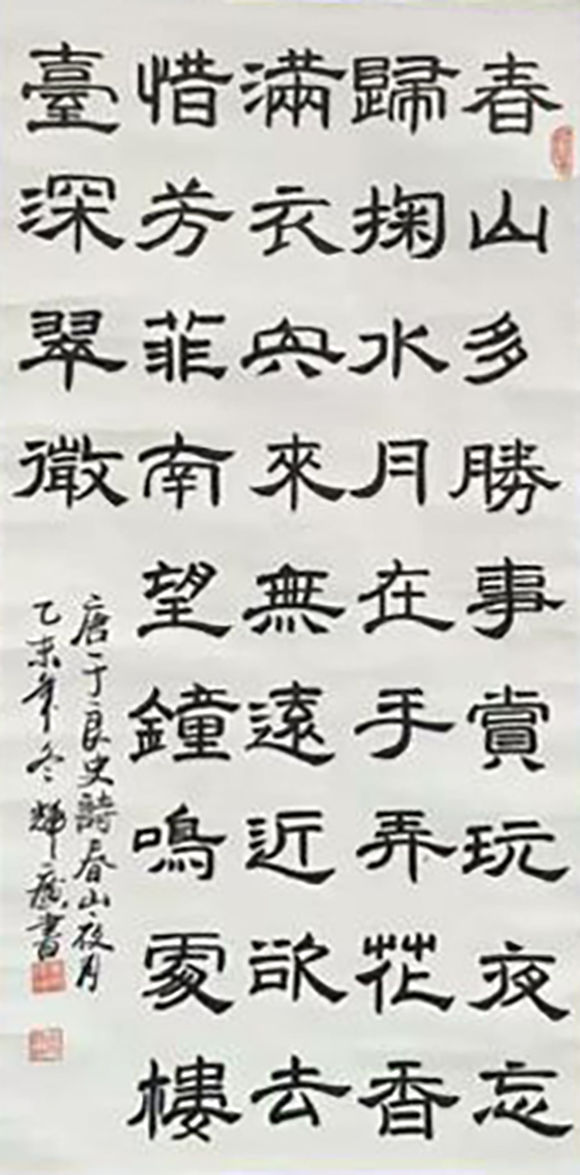 春山多勝事賞玩夜忘
歸掬水月在手弄花香
滿衣興來無遠近欲去
惜芳菲南望鐘鳴處樓
臺深翠微
唐于良史詩春山夜月
乙未年冬輝書